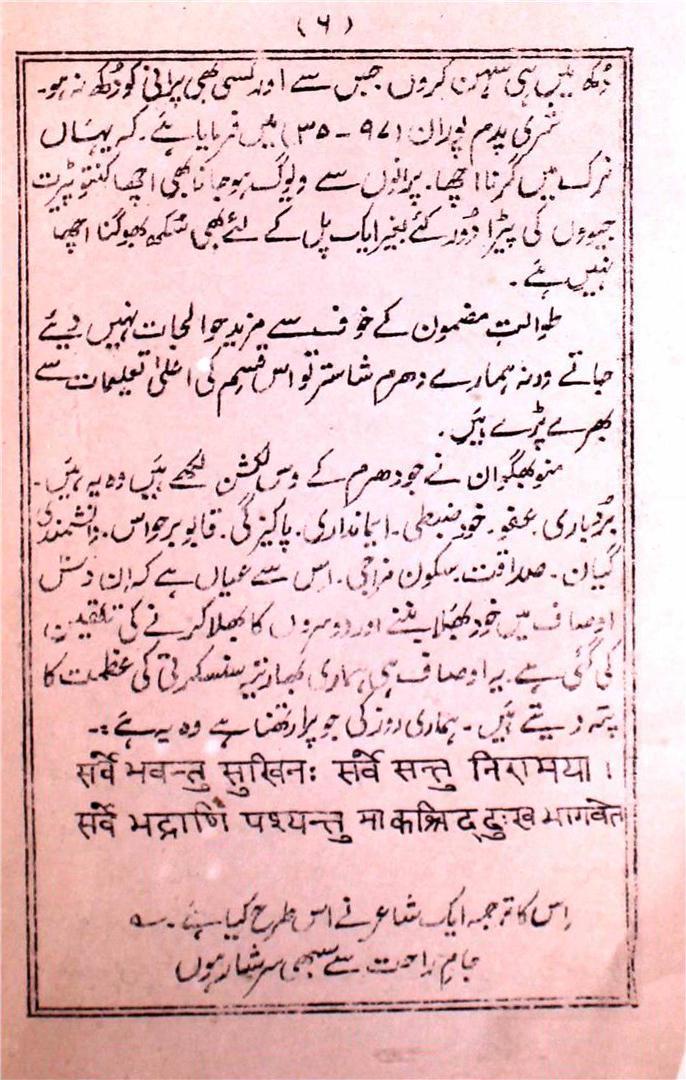 (۶)
دُکھ میں ہی سہن کروں جس سے اور کسی بھی پرانی کو دُکھ نہ ہو۔
شری پدم پوران (۹۷ - ۳۵) میں فرمایا ہے۔ کہ یہاں
نرک میں گرنا اچھا۔ پرانوں سے ویوگ ہو جانا بھی اچھا کنتو پیڑت
جیووں کی پیڑا دُور کئے بغیر ایک پل کے لئے بھی سُکھ بھوگنا اچھا
نہیں ہے۔
طوالتِ مضمون کے خوف سے مزید حوالجات نہیں دیئے
جاتے ورنہ ہمارے دھرم شاستر تو اس قسم کی اعلیٰ تعلیمات سے
بھرے پڑے ہیں۔
منو بھگوان نے جو دھرم کے دس لکشن لکھے ہیں وہ یہ ہیں۔
بُردباری۔ عفو۔ خود ضبطی۔ ایمانداری۔ پاکیزگی۔ قابو بر حواس۔ دانشمندی
گیان۔ صداقت۔ سکون مزاجی۔ اس سے عیاں ہے کہ ان دس
اوصاف میں خود بھلا بننے اور دوسروں کا بھلا کرنے کی تلقین
کی گئی ہے۔ یہ اوصاف ہی ہماری بھارتیہ سنسکرتی کی عظمت کا
پتہ دیتے ہیں۔ ہماری روز کی جو پرارتھنا ہے وہ یہ ہے :-
सर्वे भवन्तु सुखिनः सर्वे सन्तु निरामया ।
सर्वे भद्राणि पश्यन्तु मा कश्चिद् दुःख भागवेत
اِس کا ترجمہ ایک شاعر نے اس طرح کیا ہے۔ ؎
جامِ راحت سے سبھی سرشار ہوں